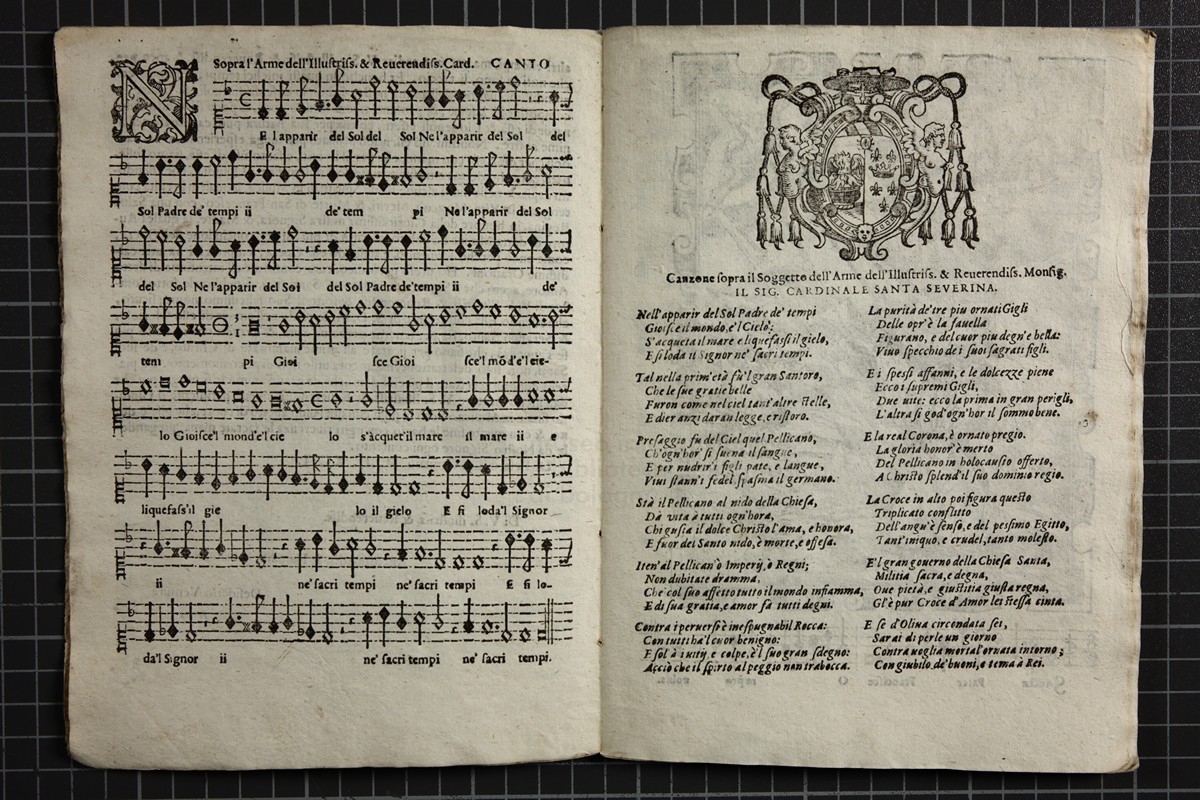 Sopra l'Arme dell'Illustriss. & Reuerendiss. Card. CANTO
N
E l apparir del Sol del Sol Ne l'apparir del Sol del
Sol Padre de' tempi ii de' tem pi Ne l'apparir del Sol
del Sol Ne l'apparir del Sol del Sol Padre de' tempi ii de'
tem pi Gioi sce Gioi sce'l mõ d'e'l cie-
lo Gioisce'l mond'e'l cie lo s'àcquet'il mare il mare ii e
liquefass'il gie lo il gielo E si loda'l Signor
ii ne' sacri tempi ne' sacri tempi E si lo-
da'l Signor ii ne' sacri tempi ne' sacri tempi.
Canzone sopra il Soggetto dell'Arme dell'Illustriss. & Reuerendiss. Monsig.
IL SIG. CARDINALE SANTA SEVERINA.
Nell'apparir del Sol Padre de' tempi
Gioisce il mondo, e'l Cielo;
S'acqueta il mare e liquefassi il gielo,
E si loda il Signor ne' sacri tempi.
Tal nella prim'età fù'l gran Santoro,
Che le sue gratie belle
Furon come nel ciel tant'altre stelle,
E dier anzi daran legge, e ristoro.
Presaggio fù del Ciel quel Pellicano,
Ch'ogn'hor' si suena il sangue,
E per nudrir'i figli pate, e langue,
Viui stann'i fedel spasma il germano.
Stà il Pellicano al nido della Chiesa,
Dà vita à tutti ogn'hora,
Chi gusta il dolce Christo l'ama, e honora,
E fuor del Santo nido, è morte, e offesa.
Iten' al Pellican'ò Imperij, ò Regni;
Non dubitate dramma,
Che col suo affetto tutto il mondo infiamma,
E di sua gratia, e amor fà tutti degni.
Contra i peruersi è inespugnabil Rocca:
Con tutti ha'l cuor benigno:
E sol à i uitij, e colpe, è'l suo gran sdegno:
Acciò che il spirto al peggio non trabocca.
La purità de' tre piu ornati Gigli
Delle opr'è la fauella
Figurano, e del cuor piu degn'e bella:
Viuo specchio de i suoi sagrati figli.
E i spessi affanni, e le dolcezze piene
Ecco i supremi Gigli,
Due uite: ecco la prima in gran perigli,
L'altra si god'ogn'hor il sommo bene.
E la real Corona, è ornato pregio.
La gloria honor'è merto
Del Pellicano in holocausto offerto,
A Christo splend'il suo dominio regio.
La Croce in alto poi figura questo
Triplicato conflitto
Dell'angu'è senso, e del pessimo Egitto,
Tant'iniquo, e crudel, tanto molesto.
E'l gran gouerno della Chiesa Santa,
Militia sacra, e degna,
Oue pietà, e giustitia giusta regna,
Gl'è pur Croce d'Amor lei stessa cinta.
E se d'Oliua circondata sei,
Sarai di perle un giorno
Contra uoglia mortal'ornata intorno;
Con giubilo, de' buoni, e tema à Rei.